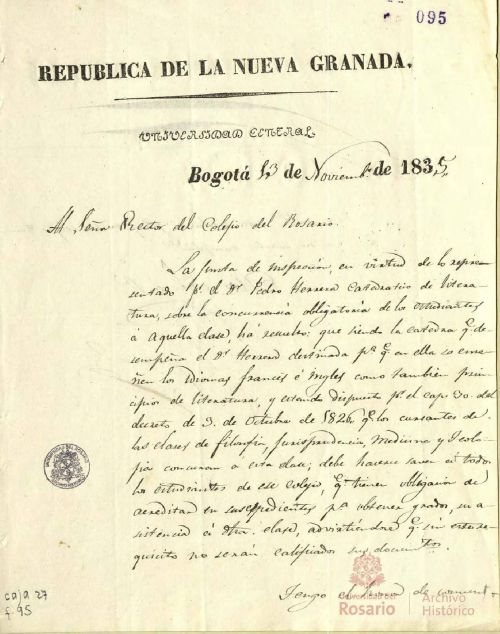 095
REPUBLICA DE LA NUEVA GRANADA.
UNIVERSIDAD CENTRAL
Bogotá 13 de Noviembe de 1835
Al Señor Rector del Colegio del Rosario.
La Junta de inspección, en virtud de lo repre
sentado pr. el Dr. Pedro Herrera Catedratico de litera
tura, sobre la concurrencia obligatoria de los estudiantes
á aquella clase, há resuelto: que siendo la catedra q. de
sempeña el Dr. Herrera destinada pa. q. en ella se ense
ñen los idiomas francés é ingles como tambien prin
cipios de literatura, y estando dispuesto pr. el cap. 30. del
decreto, de 3. de Octubre de 1826, q. los cursantes de
las clases de filosofia, Jurisprudencia, Medicina y Teolo
gia concurran a esta clase; debe hacerse saver á todos
los estudiantes de ese colegio, q. tienen obligacion de
acreditar en sus espedientes pa. obtener grados, su a
sistencia á dha. clase, advirtiendose q. sin este re
quisito no serán calificados sus documentos.
Tengo el de
caja 27
f. 95
Universidad del
Rosario
Archivo
Histórico